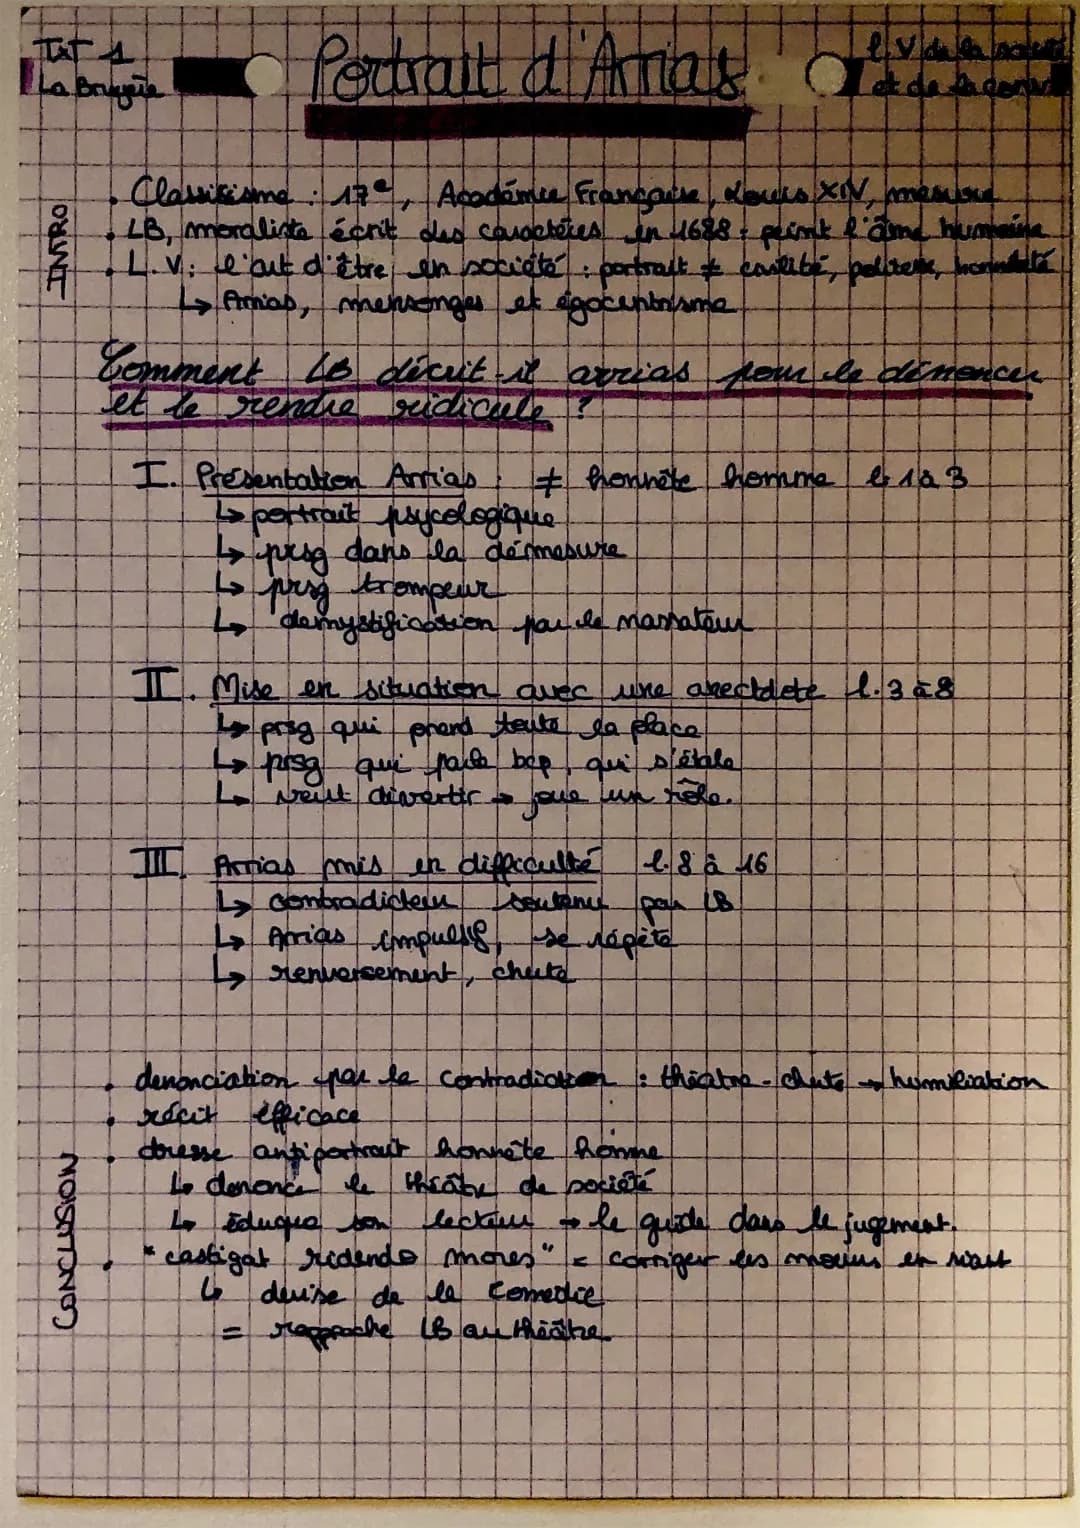 TxT 1
La Bruyère
Portrait d'Arrias
L. V de la société
et de la conv
INTRO
• Classicisme : 17e, Académie Française, Louis XIV, mesure
• LB, moraliste écrit des caractères en 1688 + peint l'âme humaine
• L. V : l'art d'être en société : portrait ≠ civilité, politesse, honnêteté
↳ Arrias, mensonges et égocentrisme
Comment LB décrit-il arrias pour le dénoncer
et le rendre ridicule ?
I. Présentation Arrias : ≠ honnête homme l. 1 à 3
↳ portrait psycologique
↳ prsg dans la démesure
↳ prsg trompeur
↳ demystification par le narrateur
II. Mise en situation avec une anectdote l. 3 à 8
↳ prsg qui prend toute la place
↳ prsg qui parle bcp, qui s'étale
↳ veut divertir → joue un rôle.
III. Arrias mis en difficulté l. 8 à 16
↳ contradicteur soutenu par LB
↳ Arrias impulsif, se répète
↳ renversement, chute
CONCLUSION
• denonciation par la contradiction : théatre - chute → humiliation
• récit efficace
• dresse antiportrait honnête homme
↳ denonce le théâtre de société
↳ éduque son lecteur → le guide dans le jugement.
• "castigat ridendo mores" = corriger les moeurs en riant
↳ devise de la Comedie
= rapproche LB au théâtre